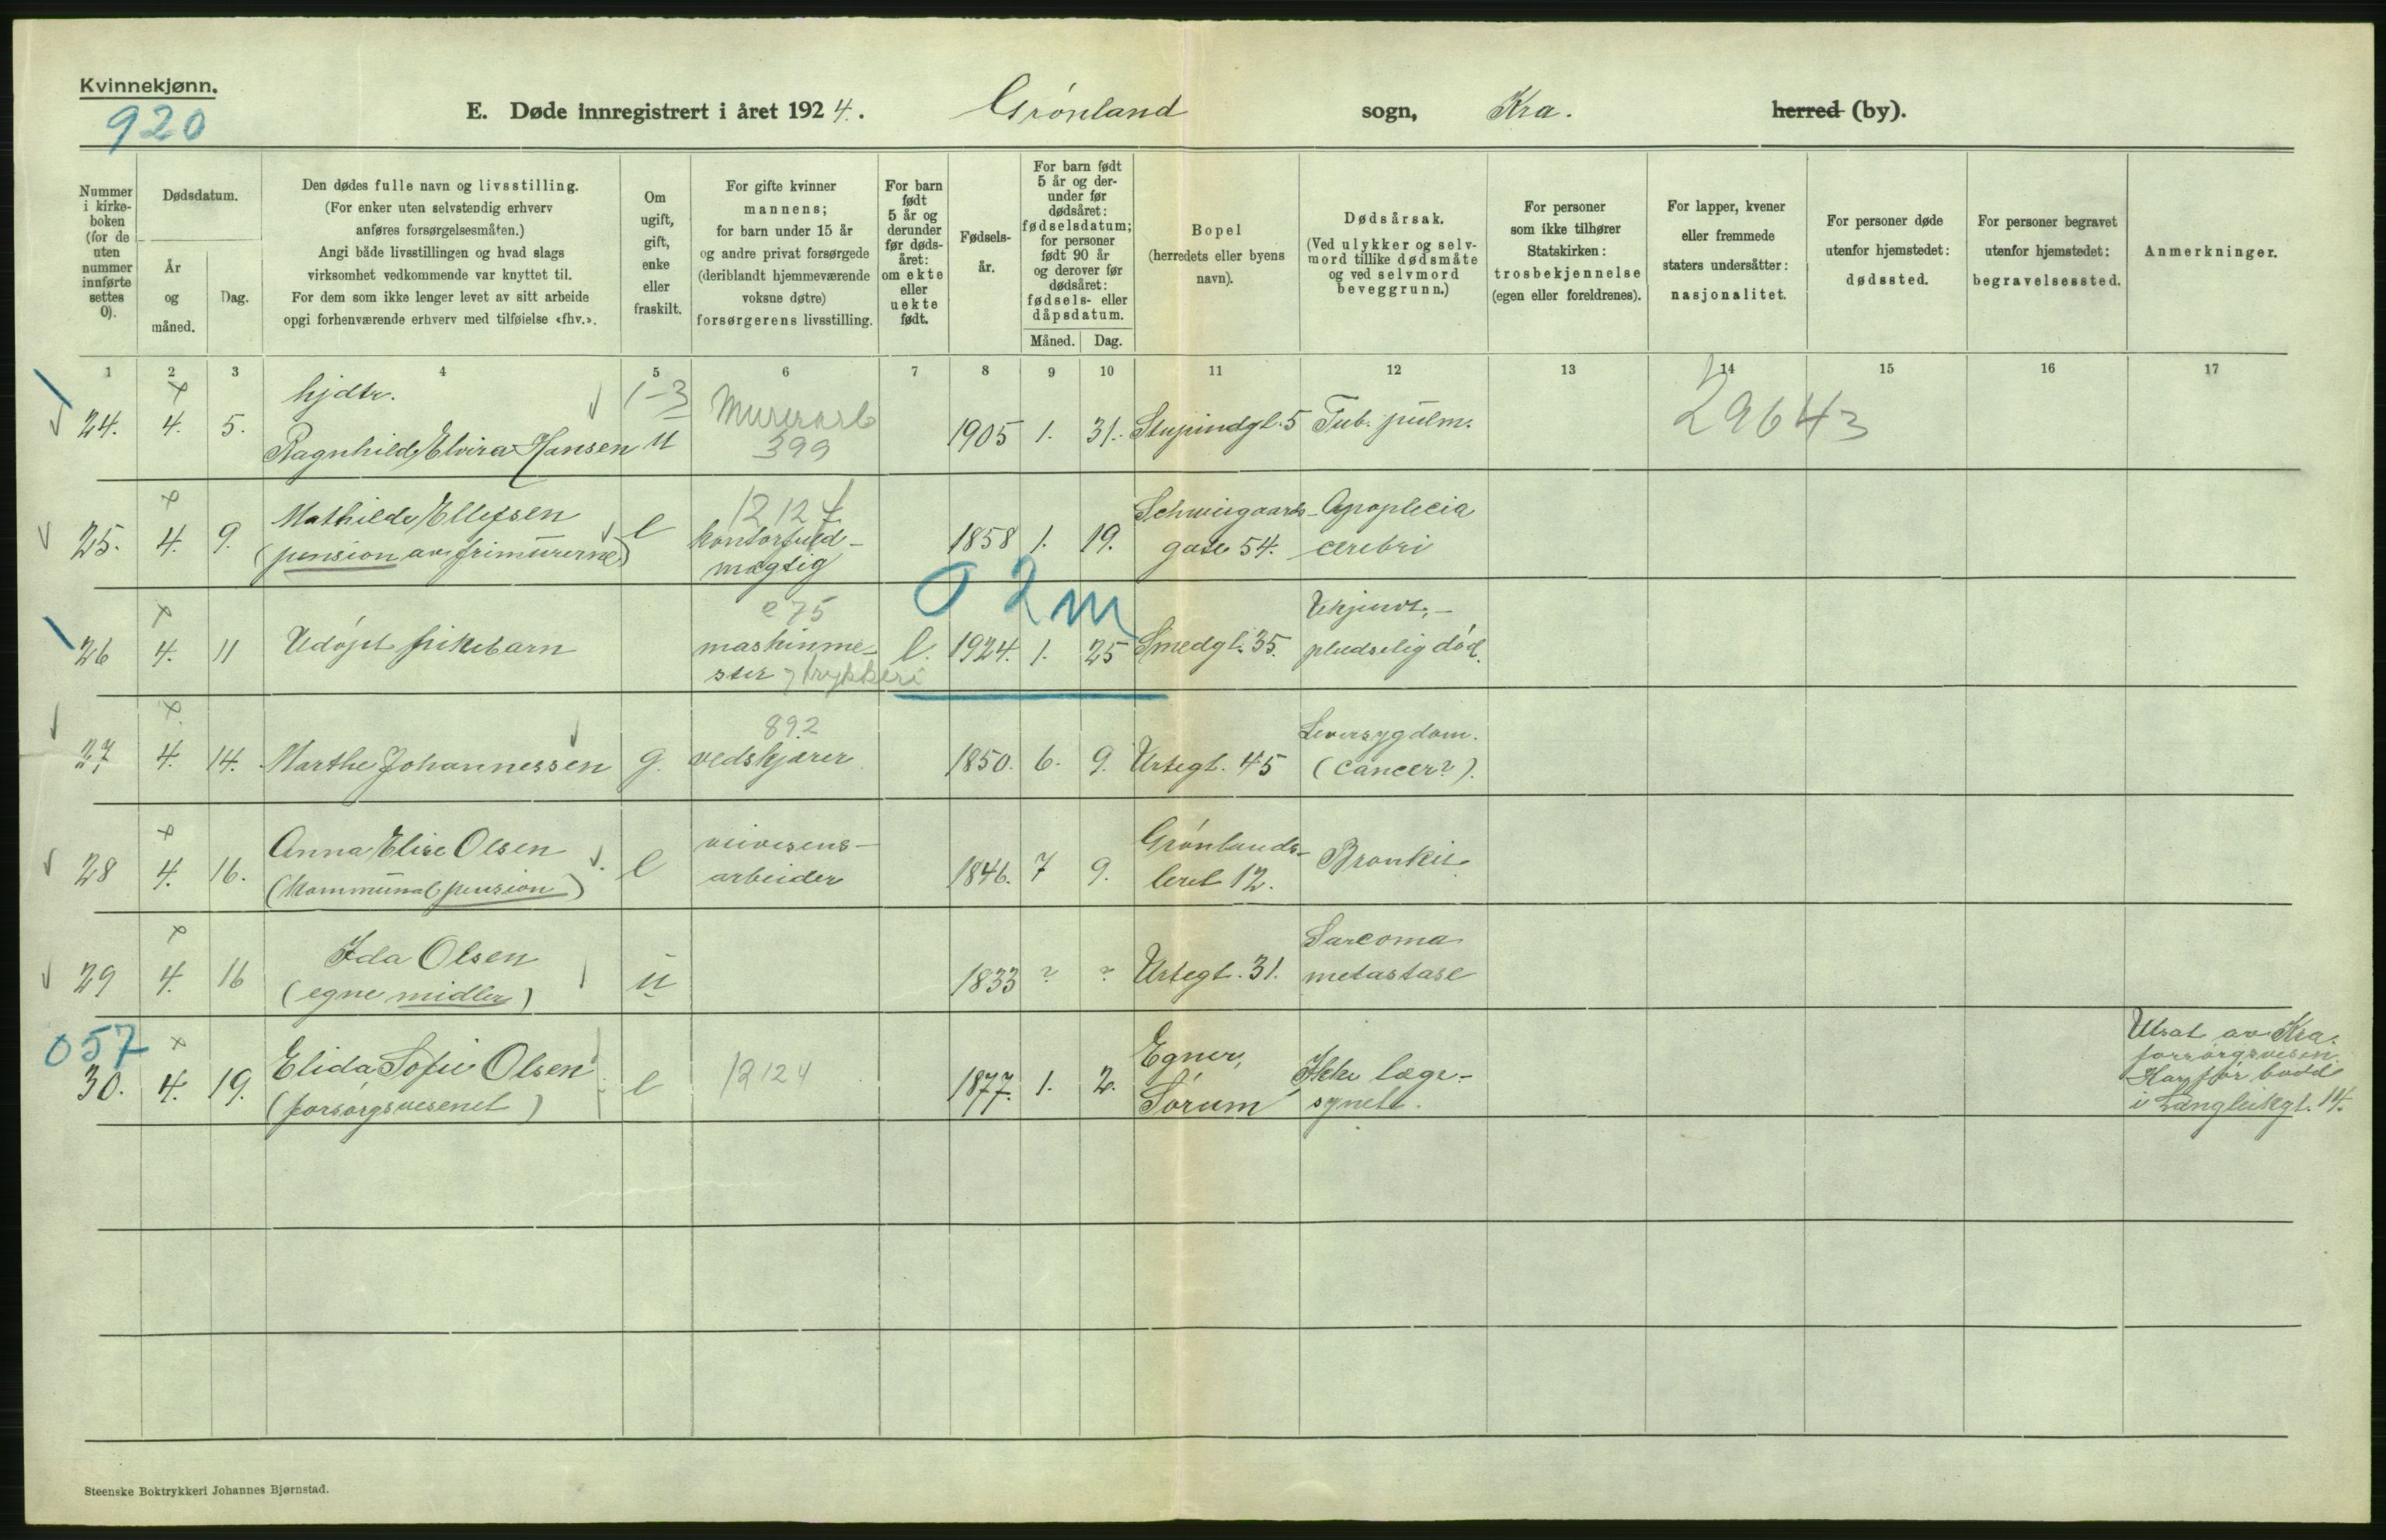 Kvinnekjønn.
920
E. Døde innregistrert i året 1924. Grønland sogn, Kra. herred (by).
Nummer i kirke-boken (for de uten nummer innførte settes 0).
Dødsdatum.
År og måned.
Dag.
Den dødes fulle navn og livsstilling.
(For enker uten selvstendig erhverv
anføres forsørgelsesmåten.)
Angi både livsstillingen og hvad slags
virksomhet vedkommende var knyttet til.
For dem som ikke lenger levet av sitt arbeide
opgi forhenværende erhverv med tilføielse «fhv.».
Om ugift, gift, enke eller fraskilt.
For gifte kvinner
mannens;
for barn under 15 år
og andre privat forsørgede
(deriblandt hjemmeværende
voksne døtre)
forsørgerens livsstilling.
For barn født 5 år og derunder før døds-året: om ekte eller uekte født.
Fødsels-år.
For barn født 5 år og der-under før dødsåret: fødselsdatum; for personer født 90 år og derover før dødsåret: fødsels- eller dåpsdatum.
Måned. Dag.
Bopel
(herredets eller byens
navn).
Dødsårsak.
(Ved ulykker og selv-
mord tillike dødsmåte
og ved selvmord
beveggrunn.)
For personer
som ikke tilhører
Statskirken:
trosbekjennelse
(egen eller foreldrenes).
For lapper, kvener
eller fremmede
staters undersåtter:
nasjonalitet.
For personer døde
utenfor hjemstedet:
dødssted.
For personer begravet
utenfor hjemstedet:
begravelsessted.
Anmerkninger.
1 2 3 4 5 6 7 8 9 10 11 12 13 14 15 16 17
hjdtr. 1-3 Murerarb 29643
24. 4. 5. Ragnhild Elvira Hansen u 399 1905 1. 31. Stupindgt. 5 Tub. pulm.
Mathilde Ellefsen 12124 Schweigaards- Apoplecia
25. 4. 9. (pension av frimurerne) e kontorfuld-
mægtig 1858 1. 19. gate 54. cerebri
02m
e75 Ukjendt,-
26 4. 11 Udøpt pikebarn maskinme-
ster trykkeri l. 1924. 1. 25 Smedgt. 35. pludselig død.
892 Leversygdom.
27 4. 14. Marthe Johannessen g. vedskjærer 1850. 6. 9. Urtegt. 45 (cancer?).
Anna Elise Olsen veivesens- Grønlands-
28 4. 16. (kommunal pension) e arbeider 1846. 7 9. leret 12. Bronkit
Ida Olsen Sarcoma
29 4. 16 (egne midler) u 1833 ? ? Urtegt. 31. metastase
057
Elida Sofie Olsen Egner, Ikke læge-
30. 4. 19. (forsørgsvesenet) e 12124 1877. 1. 2. Sørum synet.
Utsat av Kra.
forsørgsvesen.
Har før bodd
i Langleikgt. 14.
Steenske Boktrykkeri Johannes Bjørnstad.